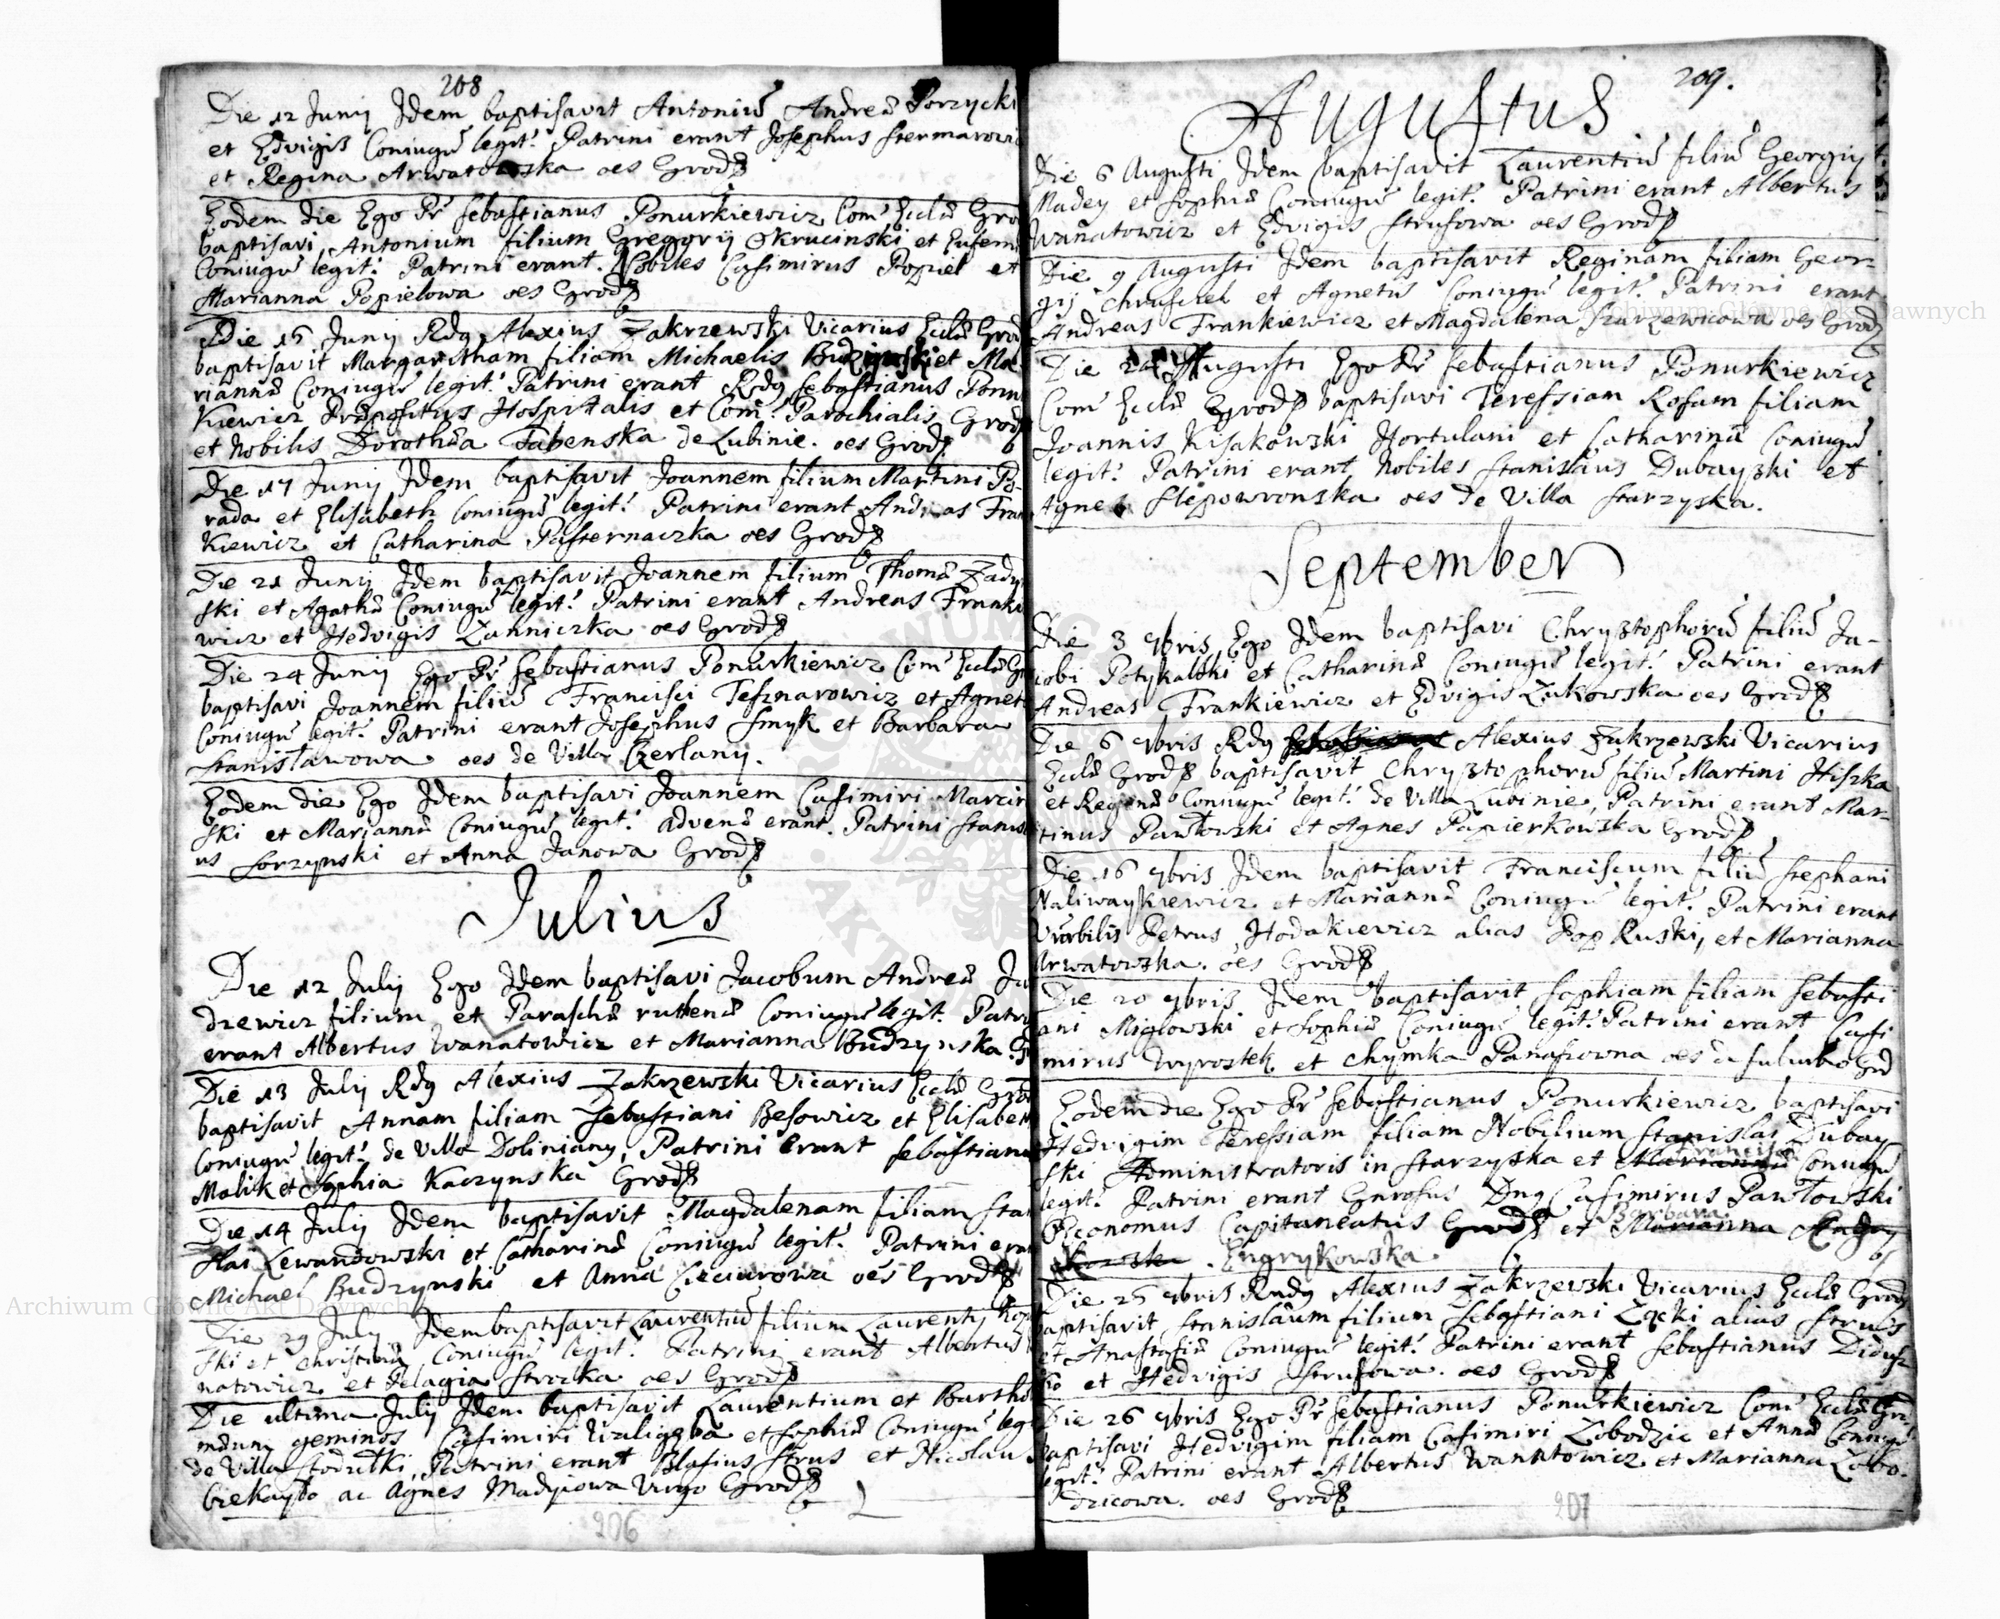 208
Die 12 Junij Idem baptisavit Antoniū Andreæ Porzycki
et Edvigis Coniugū legit: Patrini erant Josephus
et Regina Arwatowska oēs Grod:
Eodem die Ego Pr Sebastianus Ponurkiewicz Com Eccl Gro
baptisavi Antonium filium Gregorij Skrucinski et Eufem
Coniugū legit: Patrini erant. Nobiles Casimirus Popiel et
Marianna Popielowa oēs Grod:
Die 15 Junij Rdg Alexius Zakrzewski Vicarius Eccl Grod
baptisavit Margaretham filiam Michaelis Budzinski et Ma
riannæ Coniugū legit: Patrini erant Rdg Sebastianus Ponur
kiewicz Præpositus Hospitalis et Com: Parochialis Grod
et Nobilis Dorothea Tabenska de Lubinie. oēs Grod:
Die 17 Junij Idem baptisavit Joannem filium Martini Po-
rada et Elisabeth Coniugū legit: Patrini erant Andreas Fran
kiewicz et Catharina Pasternaczka oēs Grod:
Die 21 Junij Idem baptisavit Joannem filium Thomæ Zady
ski et Agathæ Coniugū legit: Patrini erant Andreas Franki
wicz et Hedvigis Zanniczka oēs Grod:
Die 24 Junij Ego Pr Sebastianus Ponurkiewicz Com Eccl Gr
baptisavi Joannem filiū Francisci Tesznarowicz et Agnetis
Coniugū legit: Patrini erant Josephus Smyk et Barbara
Stanisławowa oēs de Villa Czerlany.
Eodem die Ego Idem baptisavi Joannem Casimiri Marcin
ski et Mariannæ Coniugū legit: advenæ erant. Patrini Stanisl
us Sorzynski et Anna Janowa Grod:
Julius
Die 12 Julij Ego Idem baptisavi Jacobum Andreæ Ju
dzewicz filium et Paraschæ ruthenæ Coniugū legit: Patri
erant Albertus Wanatowicz et Marianna Budzynska Gr
Die 13 Julij Rdg Alexius Zakrzewski Vicarius Eccl Grod
baptisavit Annam filiam Sebastiani Besowicz et Elisabeth
Coniugū legit: de Villa Doliniany, Patrini Erant Sebastianus
Malik et Sophia Kaczynska Grod:
Die 14 Julij Idem baptisavit Magdalenam filiam Stan
slai Lewandowski et Catharinæ Coniugū legit: Patrini eran
Michael Budzynski et Anna Cieciurowa oēs Grod:
Die 29 July Idem baptisavit Laurentiū filium Laurentij Kop
ski et Christinæ Coniugū legit: Patrini erant Albertus
natowicz et Pelagia Strocka oēs Grod:
Die ultima July Idem baptisavit Laurentium et Bartho
mæum geminos Casimiri Waligora et Sophiæ Coniugū legi
de Villa Stodułki, Patrini erant Blasius Strus et Nicolaus
Biekayło ac Agnes Madyiowa Virgo Grod:
206
209.
Augustus
Die 6 Augusti Idem baptisavit Laurentiū filiū Georgij
Madey et Sophiæ Coniugū legit: Patrini erant Albertus
Wanatowicz et Edvigis Strusowa oēs Grod:
Die 9 Augusti Idem baptisavit Reginam filiam Geor-
gij Chrusciel et Agnetis Coniugū legit: Patrini erant
Andreas Frankiewicz et Magdalena Starzewicowa oēs Grod
Die 24 Augusti Ego Pr Sebastianus Ponurkiewicz
Com Eccl Grod baptisavi Teressiam Rosam filiam
Joannis Kisakowski Hortulani et Catharinæ Coniugū
legit: Patrini erant Nobiles Stanislaus Dubayski et
Agnes Slepowronska oēs de Villa Starzyska.
September
Die 3 9bris, Ego Idem baptisavi Chrysztophorū filiū Ja-
cobi Potykalski et Catharinæ Coniugū legit: Patrini erant
Andreas Frankiewicz et Edvigis Zukowska oēs Grod:
Die 6 9bris Rdg Alexius Zakrzewski Vicarius
Eccl Grod: baptisavit Chrysztophorū filiū Martini Hiszka
et Reginæ Coniugū legit: de Villa Lubinie, Patrini erant Mar-
tinus Pawłowski et Agnes Papierkowska Grod:
Die 16 9bris Idem baptisavit Franciscum filiū Stephani
Naliwaykiewicz et Mariannæ Coniugū legit: Patrini erant
Petrus Hodakiewicz alias Pop Ruski, et Marianna
Arwatowska. oēs Grod:
Die 20 9bris Idem baptisavit Sophiam filiam Sebasti
ani Miglowski et Sophiæ Coniugū legit: Patrini erant Casi
mirus Wyrostek et Chymka Panasiowna oēs de suburbio Grod
Eodem die Ego Pr Sebastianus Ponurkiewicz baptisavi
Hedvigim Teressiam filiam Nobilium Stanislai Dubay
ski Administratoris in Starzyska et Mariannæ Francisca Coniugū
legit: Patrini erant Gnrosus Dng Casimirus Pawłowski
Œconomus Capitaneatus Grod: et Marianna Barbara
Engrykowska
Die 25 9bris Rndg Alexius Zakrzewski Vicarius Eccl Grod
baptisavit Stanislaum filium Sebastiani Zącki alias Strus
et Anastasiæ Coniugū legit: Patrini erant Sebastianus Didusz
ko et Hedvigis Strusowa. oēs Grod:
Die 26 9bris Ego Pr Sebastianus Ponurkiewicz Com Eccl Gr
baptisavi Hedvigim filiam Casimiri Łobodzic et Annæ Coniugū
legit: Patrini erant Albertus Wanatowicz et Marianna Łobo-
dzicowa. oēs Grod:
207
Archiwum Główne Akt Dawnych
Archiwum Główne Akt Dawnych